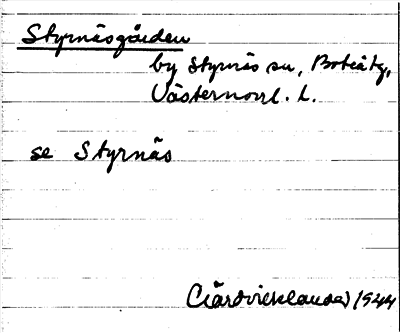 Styrnäsgården
by Styrnäs sn, Boteåtg,
Västernorrl. L.
se Styrnäs
1944